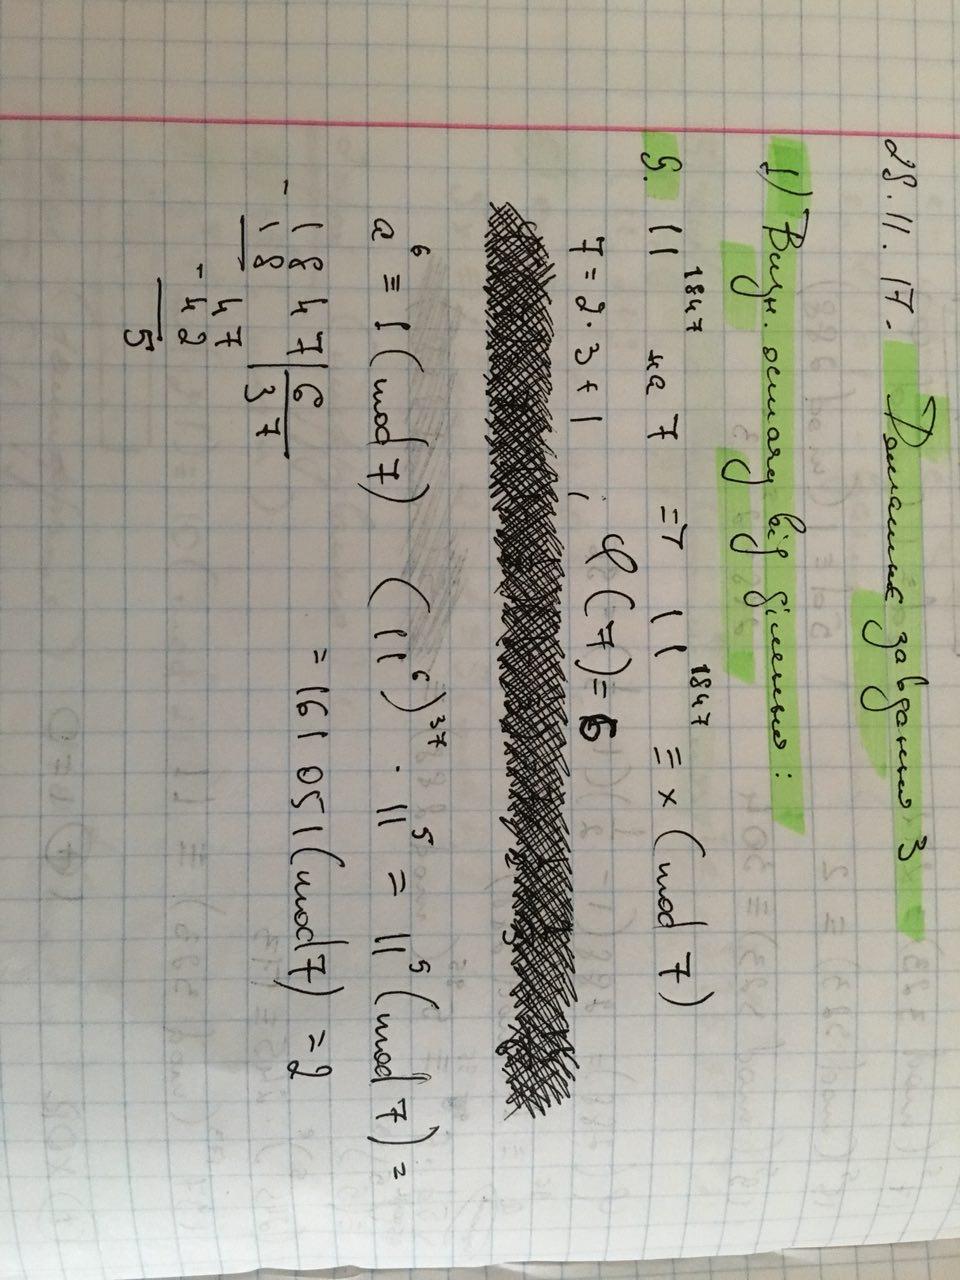 28.11.17. Домашнє завдання 3
1) Визн. остачу від ділення:
9. 11^1847 на 7 => 11^1847 ≡ x (mod 7)
7 = 2·3+1, φ(7) = 6
a^6 ≡ 1 (mod 7) (11^6)^37 · 11^5 = 11^5 (mod 7) =
= 161 051 (mod 7) = 2
- 1847 | 6
18 37
- 47
42
5